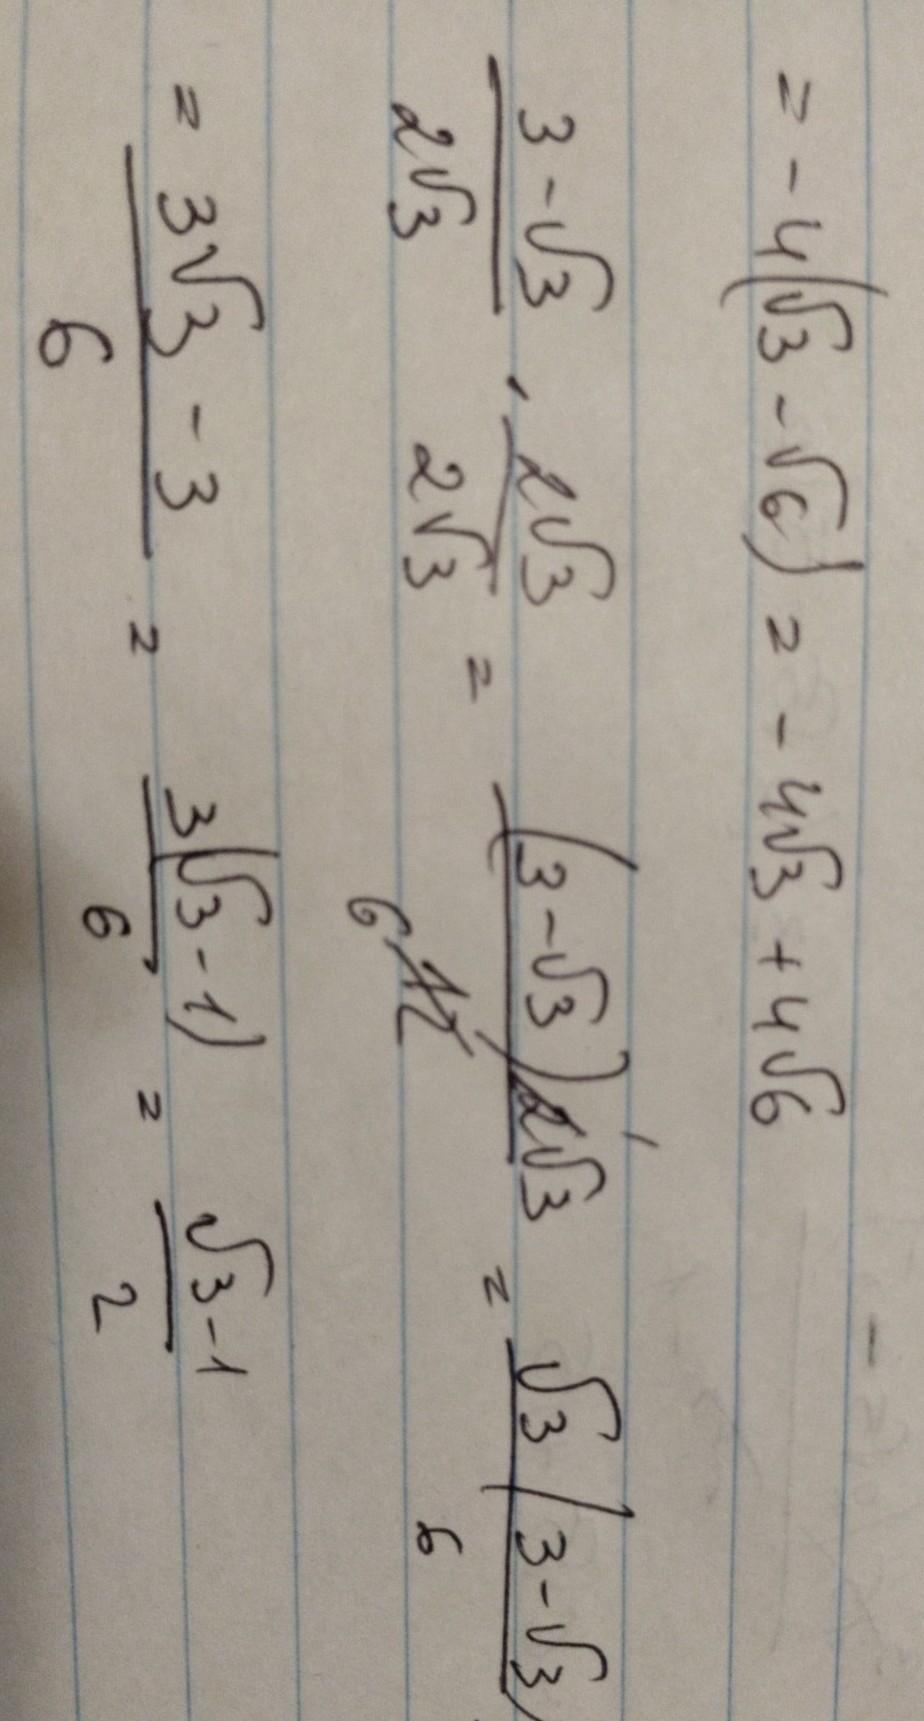 = -4(√3 - √6) = -4√3 + 4√6
(3 - √3)/(2√3) · (2√3)/(2√3) = ((3 - √3)2√3)/12 6 = (√3(3 - √3))/6
= (3√3 - 3)/6 = (3(√3 - 1))/6 = (√3 - 1)/2